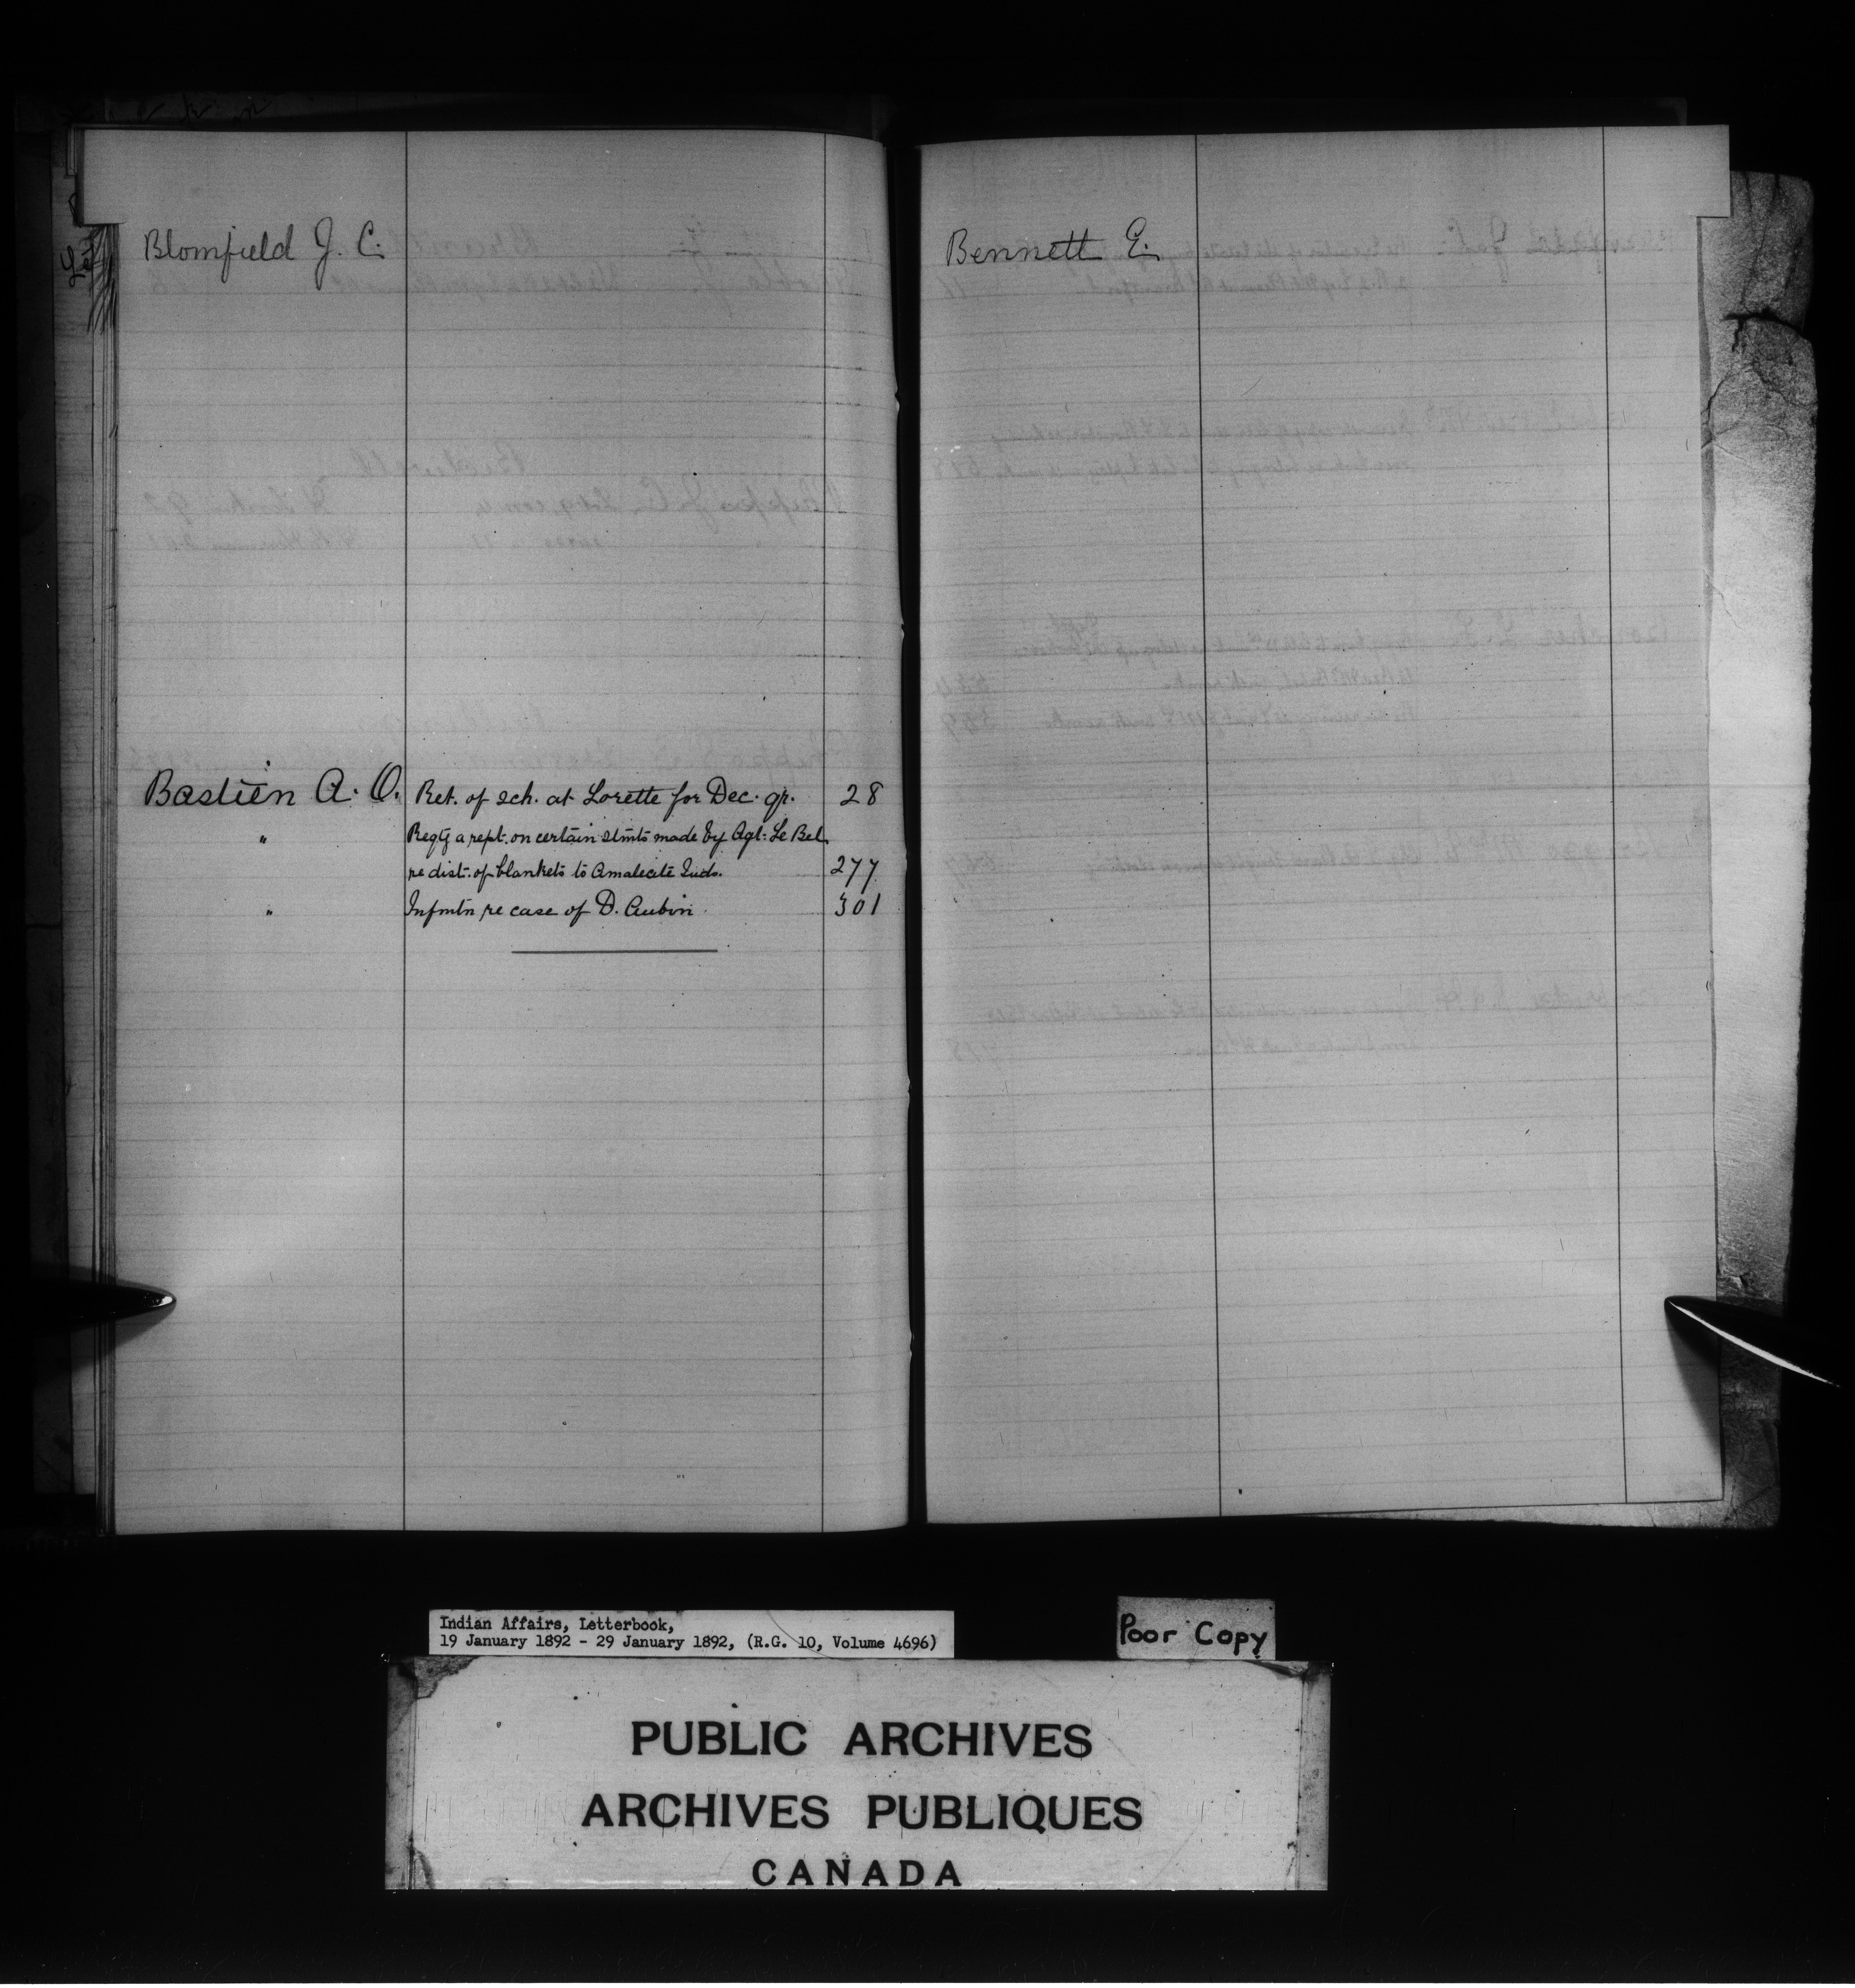 Blomfield J. C.
Bastien A. O. Ret. of sch. at Lorette for Dec. qr. 28
" Reqtg a rept. on certain stmts made by Agt. Le Bel
re dist. of blankets to Amalecite Inds. 277
" Infmtn re case of D. Aubin. 301
Bennett E.
Indian Affairs, Letterbook,
19 January 1892 - 29 January 1892, (R.G. 10, Volume 4696)
Poor Copy
PUBLIC ARCHIVES
ARCHIVES PUBLIQUES
CANADA